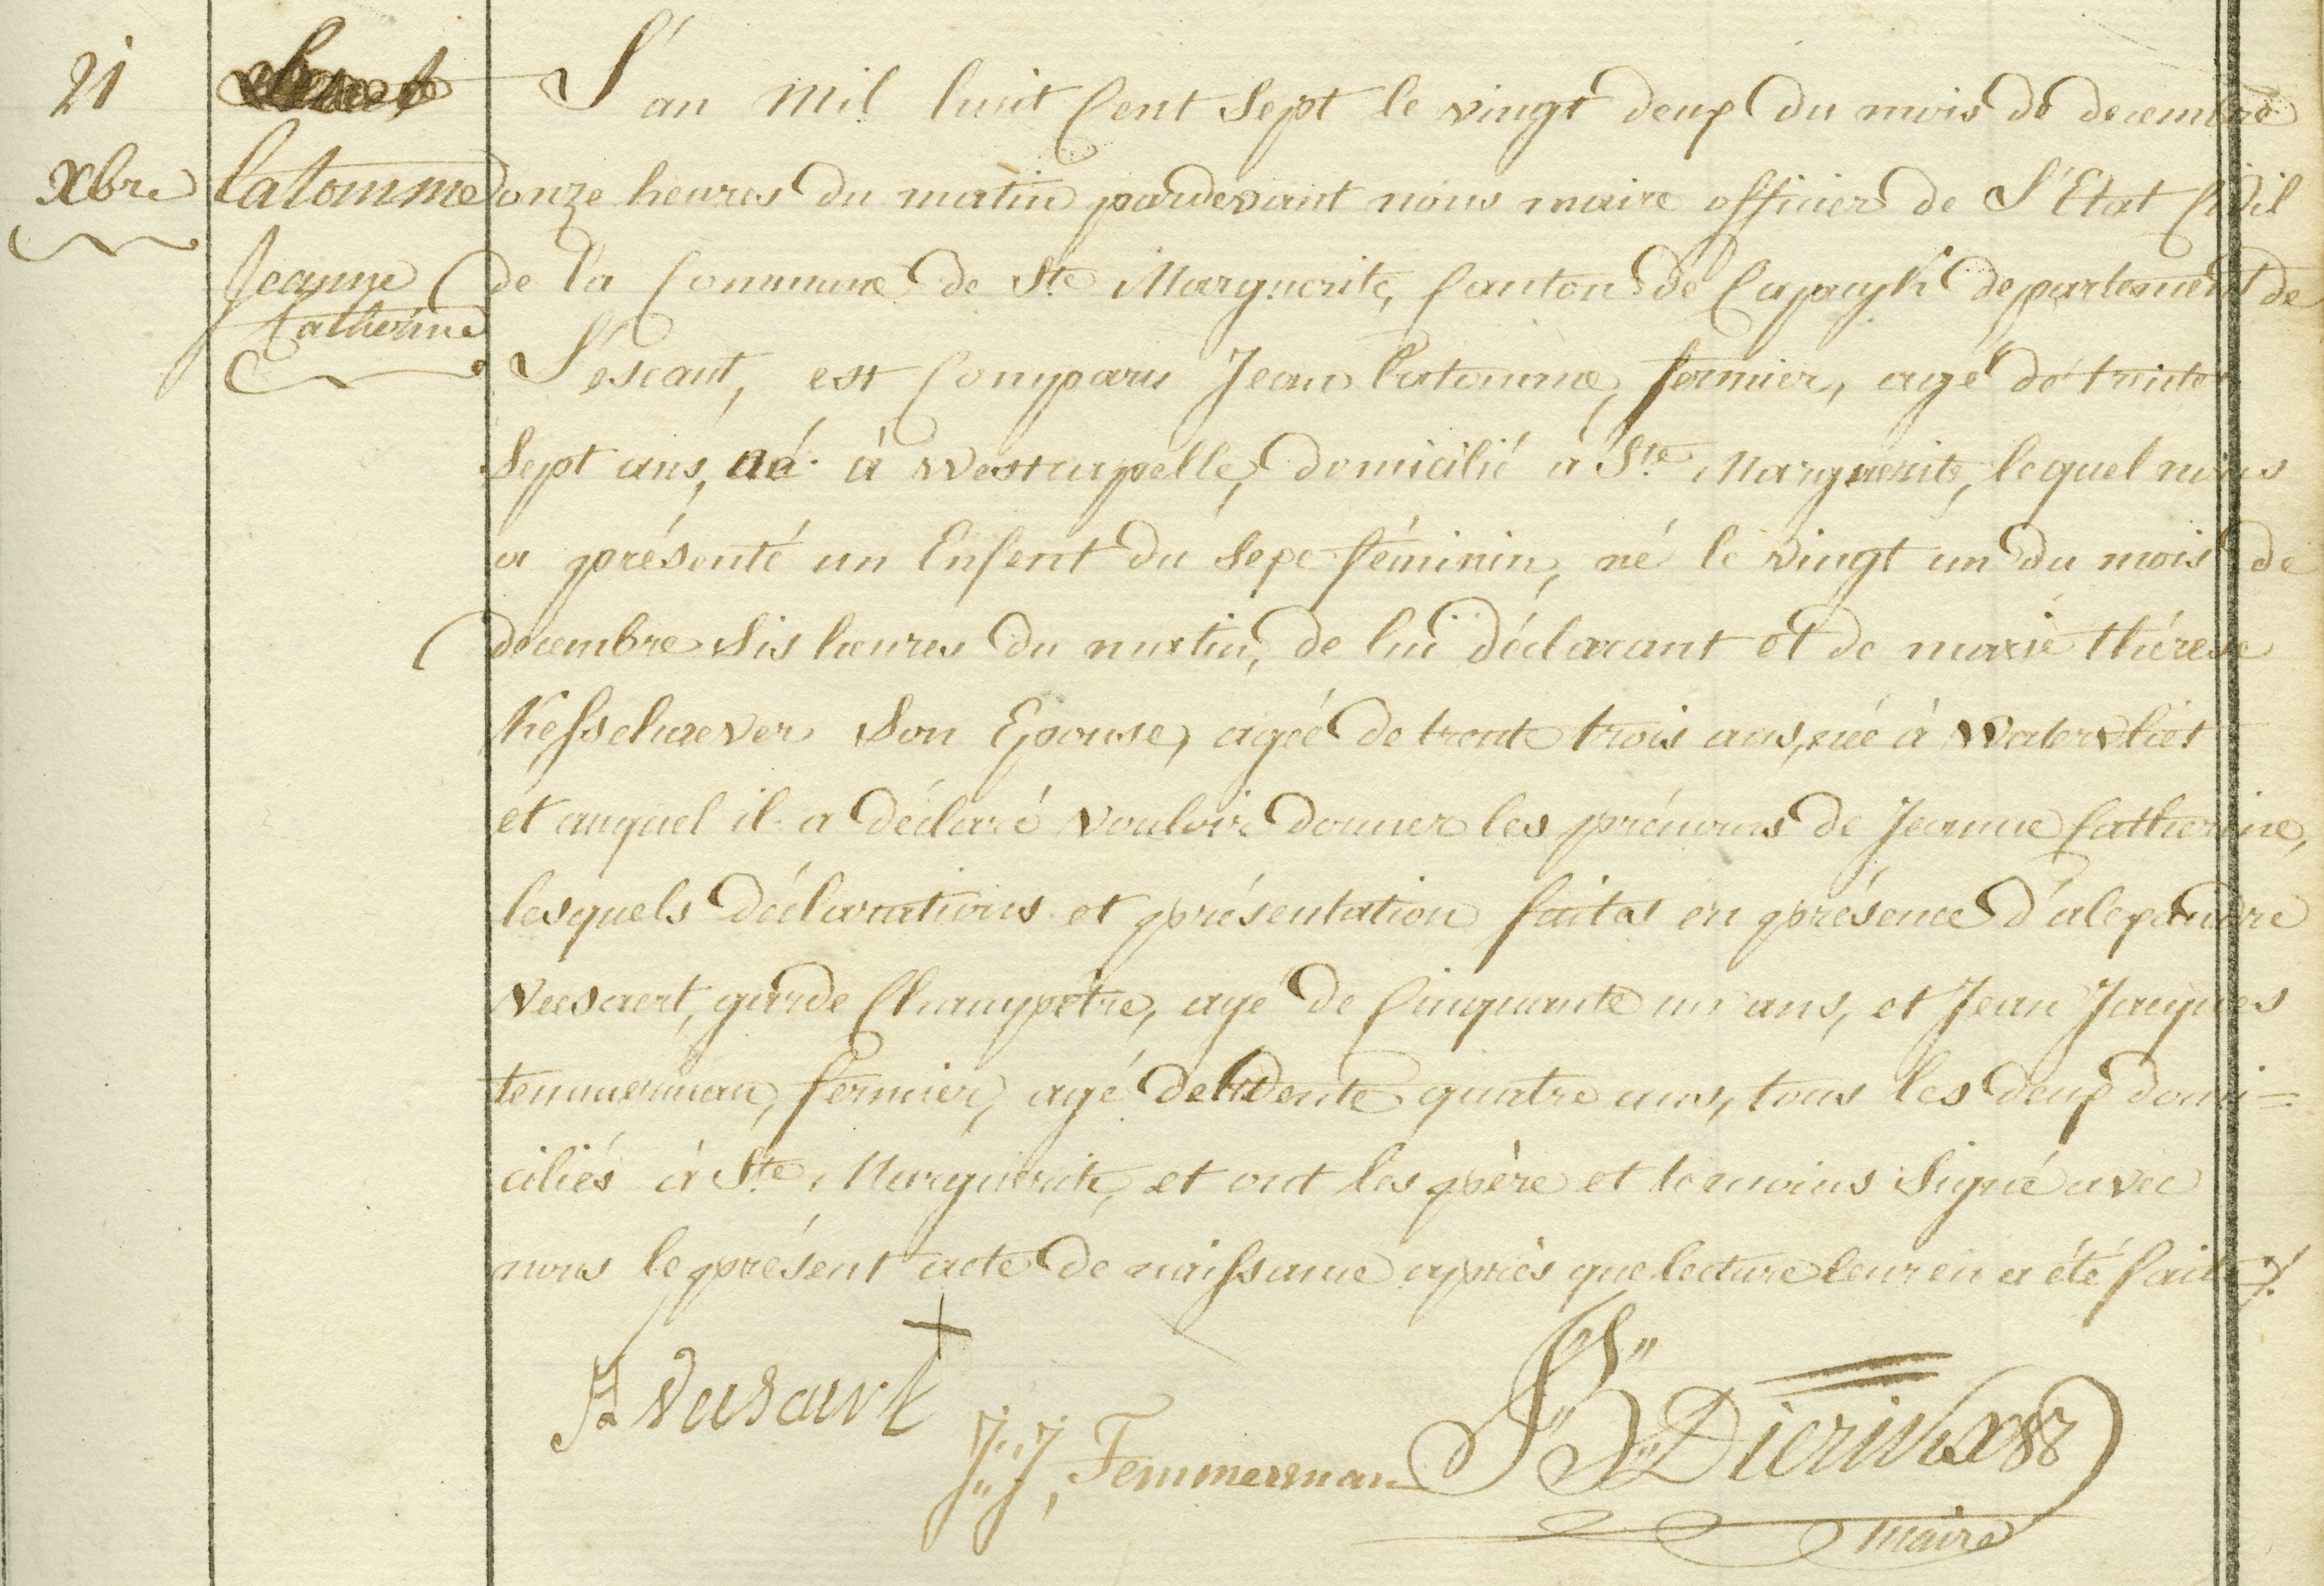 21
xbre
Catomme
Jeanne
Catherine
L'an mil huit Cent Sept le vingt deux du mois de decembre
onze heures du matin pardevant nous maire officier de L'Etat Civil
de la Commune de Ste Marguerite, Canton de Capryk departement de
L'escaut, est Comparu Jean Catomme, fermier, agé de trente
Sept ans, né à Westcapelle, domicilié à Ste Marguerite, lequel nous
a présenté un Enfent du Sexe féminin, né le vingt un du mois de
decembre Sis heures du matin, de lui déclarant et de marie thérese
Son Epouse, agée de trente trois ans, née à Watervliet
et auquel il a déclaré vouloir donner les prénoms de Jeanne Catherine,
lesquels déclarations et présentation faites en présence d'alexandre
Veesaert, garde Champêtre, agé de Cinquante un ans, et Jean Jacques
temmerman, fermier, agé de trente quatre ans, tous les deux domi=
ciliés à Ste Marguerite, et ont les père et temoins Signé avec
nous le présent acte de naissance après que lecture leur en a été faite ./.
J: J, Temmerman
maire